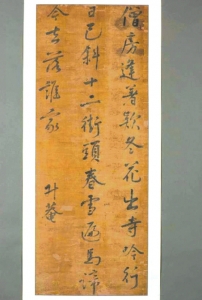 僧房逢著款冬花出寺吟行
日已斜十二街頭春雪遍馬蹄
今去落誰家
斗菴